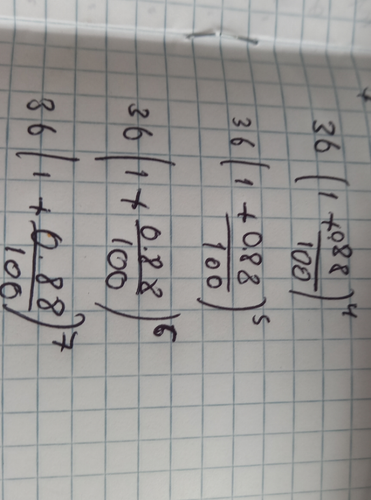 36(1+0.88/100)^4
36(1+0.88/100)^5
36(1+0.88/100)^6
86(1+0.88/100)^7